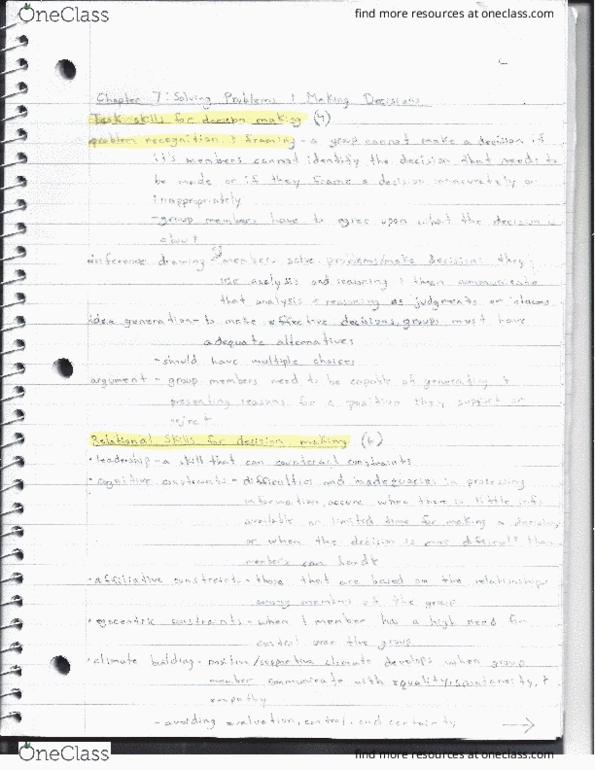 OneClass
find more resources at oneclass.com
Chapter 7: Solving Problems & Making Decisions
Task skills for decision making (4)
problem recognition & framing - a group cannot make a decision if
it's members cannot identify the decision that needs to
be made or if they frame a decision inaccurately or
inappropriately
- group members have to agree upon what the decision is
about
inference drawing - members solve problems/make decisions they
use analysis and reasoning & then communicate
that analysis & reasoning as judgments or
idea generation - to make effective decisions, groups must have
adequate alternatives
- should have multiple choices
argument - group members need to be capable of generating &
presenting reasons for a position they support or
reject
Relational Skills for decision making (6)
• leadership - a skill that can counteract constraints
• cognitive constraints - difficulties and inadequacies in processing
information, occurs when there is little info
available or limited time for making a decision
or when the decision is more difficult than
members can handle
• affiliative constraint - those that are based on the relationships
among members of the group
• egocentric constraints - when 1 member has a high need for
control over the group
• climate building - positive/supportive climate develops when group
member communicate with equality, spontaneity, &
empathy
- avoiding evaluation, control, and certainty
OneClass
find more resources at oneclass.com